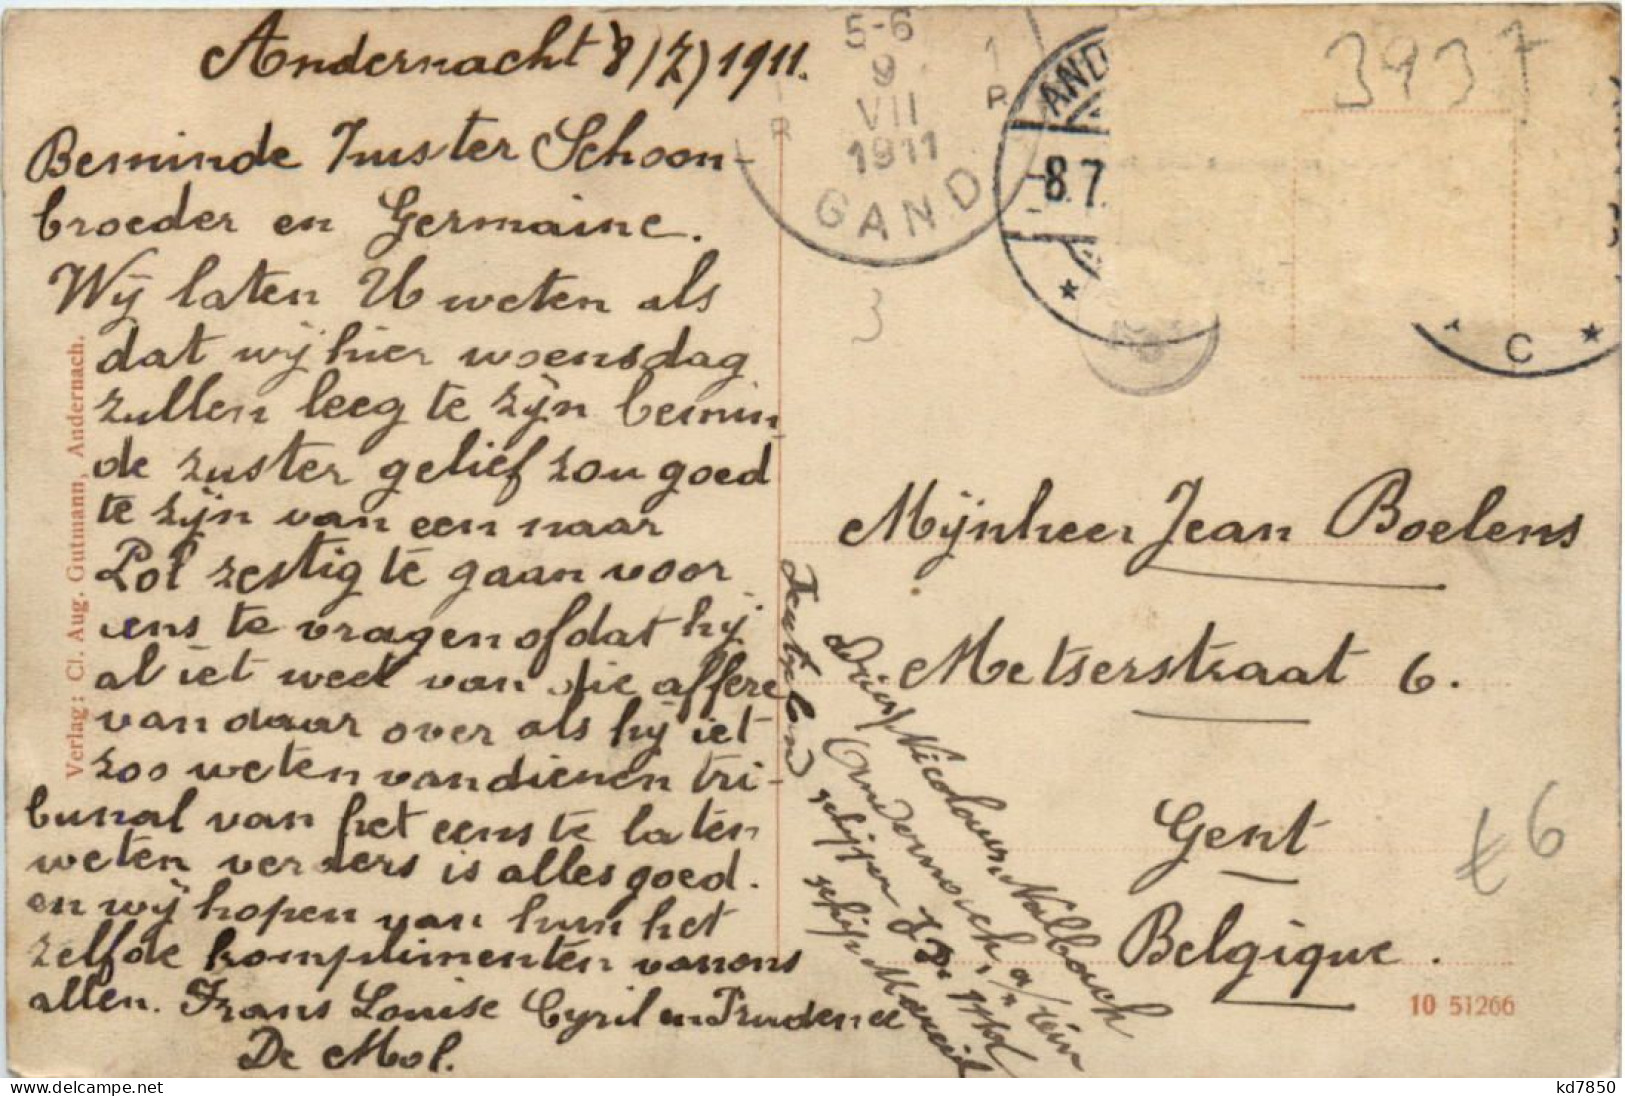 Andernacht 8/7/1911.
Beminde Zuster Schoon-
broeder en Germaine.
Wij laten U weten als
dat wij hier woensdag
zullen leeg te zijn bemin
de zuster gelief zou goed
te zijn van een naar
Pol zestig te gaan voor
ons te vragen of dat hij
al iet weet van die affere
van daar over als hij iet
zoo weten van dienen tri-
bunal van het eens te laten
weten verders is alles goed.
en wij hopen van hun het
zelfde komplimenten van ons
allen. Frans Louise Cyril en Prudence
De Mol.
Verlag: Cl. Aug. Gutmann, Andernach.
5-6
9
VII
1911
GAND
1
R
R
AND
8.7.
C
3937
3
Mijnheer Jean Boelens
Metserstraat 6.
Gent
Belgique.
€6
10 51266
Nicolaus Nalbach
Andernach, a/ Rein
schipper
schip
kd7850